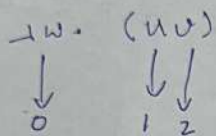 λw. (uv)
0 1 2